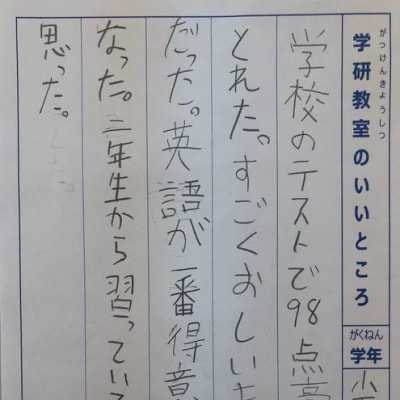 がっけんきょうしつ
学研教室のいいところ
がくねん
学年
小
学校のテストで98点高
とれた。すごくおしい
だった。英語が一番得意
なった。二年生から習っている
思った。